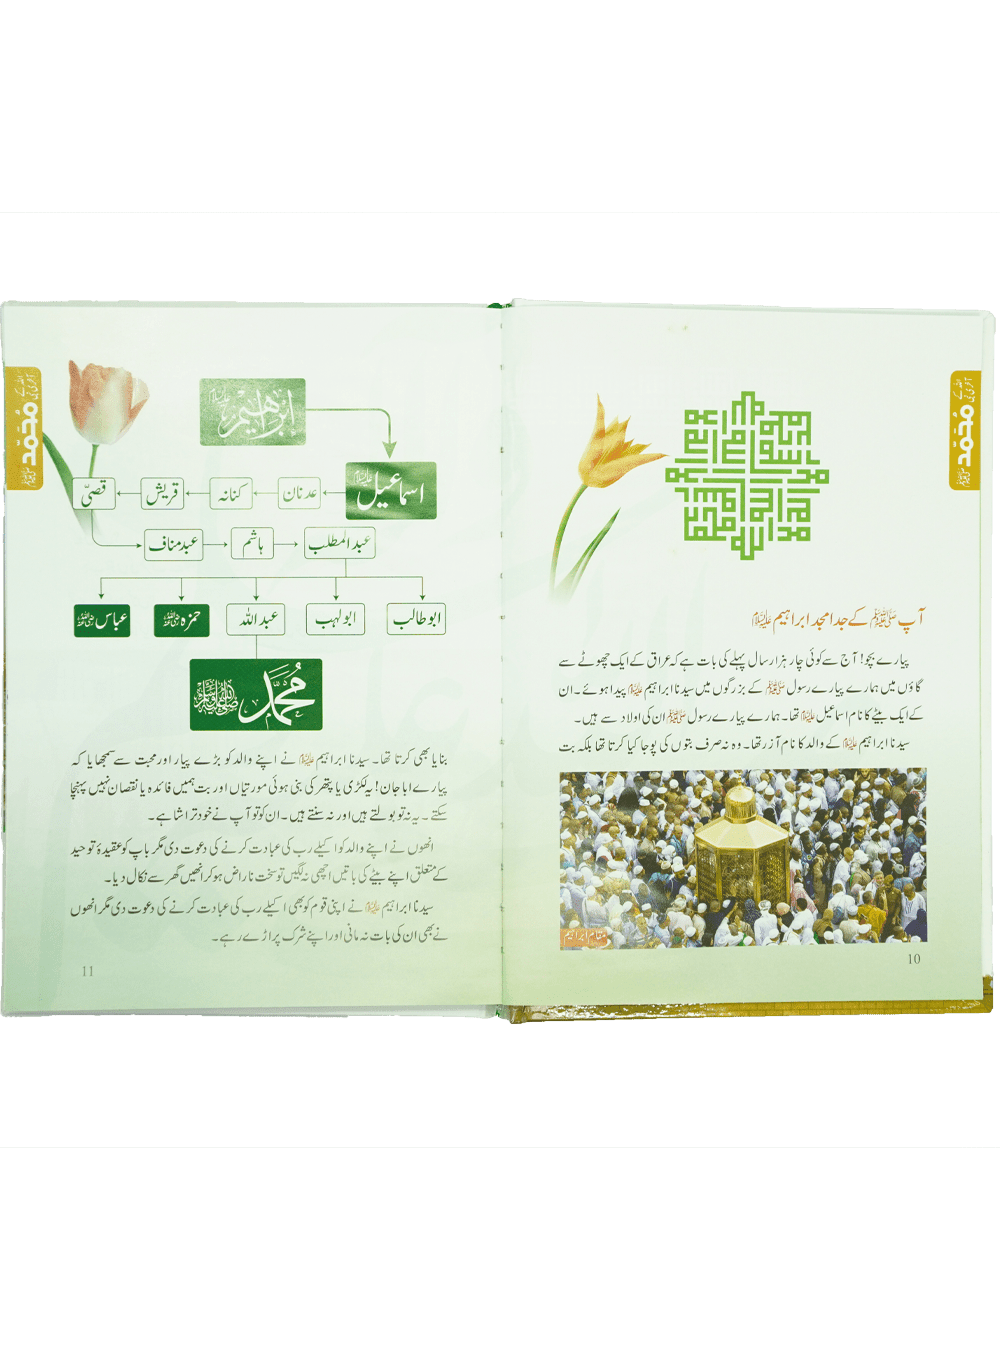 اللہ کے
آخری نبی
محمد ﷺ
آپ ﷺ کے جد امجد ابراہیم علیہ السلام
پیارے بچو! آج سے کوئی چار ہزار سال پہلے کی بات ہے کہ عراق کے ایک چھوٹے سے
گاؤں میں ہمارے پیارے رسول ﷺ کے بزرگوں میں سیدنا ابراہیم علیہ السلام پیدا ہوئے۔ ان
کے ایک بیٹے کا نام اسماعیل علیہ السلام تھا۔ ہمارے پیارے رسول ﷺ ان کی اولاد سے ہیں۔
سیدنا ابراہیم علیہ السلام کے والد کا نام آزر تھا۔ وہ نہ صرف بتوں کی پوجا کیا کرتا تھا بلکہ بت
مقام ابراہیم
10
اللہ کے
آخری نبی
محمد ﷺ
ابراهيم علیہ السلام
اسماعیل علیہ السلام
عدنان
کنانہ
قریش
قصیّ
عبدمناف
ہاشم
عبدالمطلب
ابوطالب
ابولہب
عبداللہ
حمزہ رضی اللہ عنہ
عباس رضی اللہ عنہ
مُحَمَّد صلی اللہ علیہ وسلم
بنایا بھی کرتا تھا۔ سیدنا ابراہیم علیہ السلام نے اپنے والد کو بڑے پیار اور محبت سے سمجھایا کہ
پیارے ابا جان! یہ لکڑی یا پتھر کی بنی ہوئی مورتیاں اور بت ہمیں فائدہ یا نقصان نہیں پہنچا
سکتے۔ یہ نہ تو بولتے ہیں اور نہ سنتے ہیں۔ ان کو تو آپ نے خود تراشا ہے۔
انھوں نے اپنے والد کو اکیلے رب کی عبادت کرنے کی دعوت دی مگر باپ کو عقیدۂ توحید
کے متعلق اپنے بیٹے کی باتیں اچھی نہ لگیں تو سخت ناراض ہو کر انھیں گھر سے نکال دیا۔
سیدنا ابراہیم علیہ السلام نے اپنی قوم کو بھی اکیلے رب کی عبادت کرنے کی دعوت دی مگر انھوں
نے بھی ان کی بات نہ مانی اور اپنے شرک پر اڑے رہے۔
11